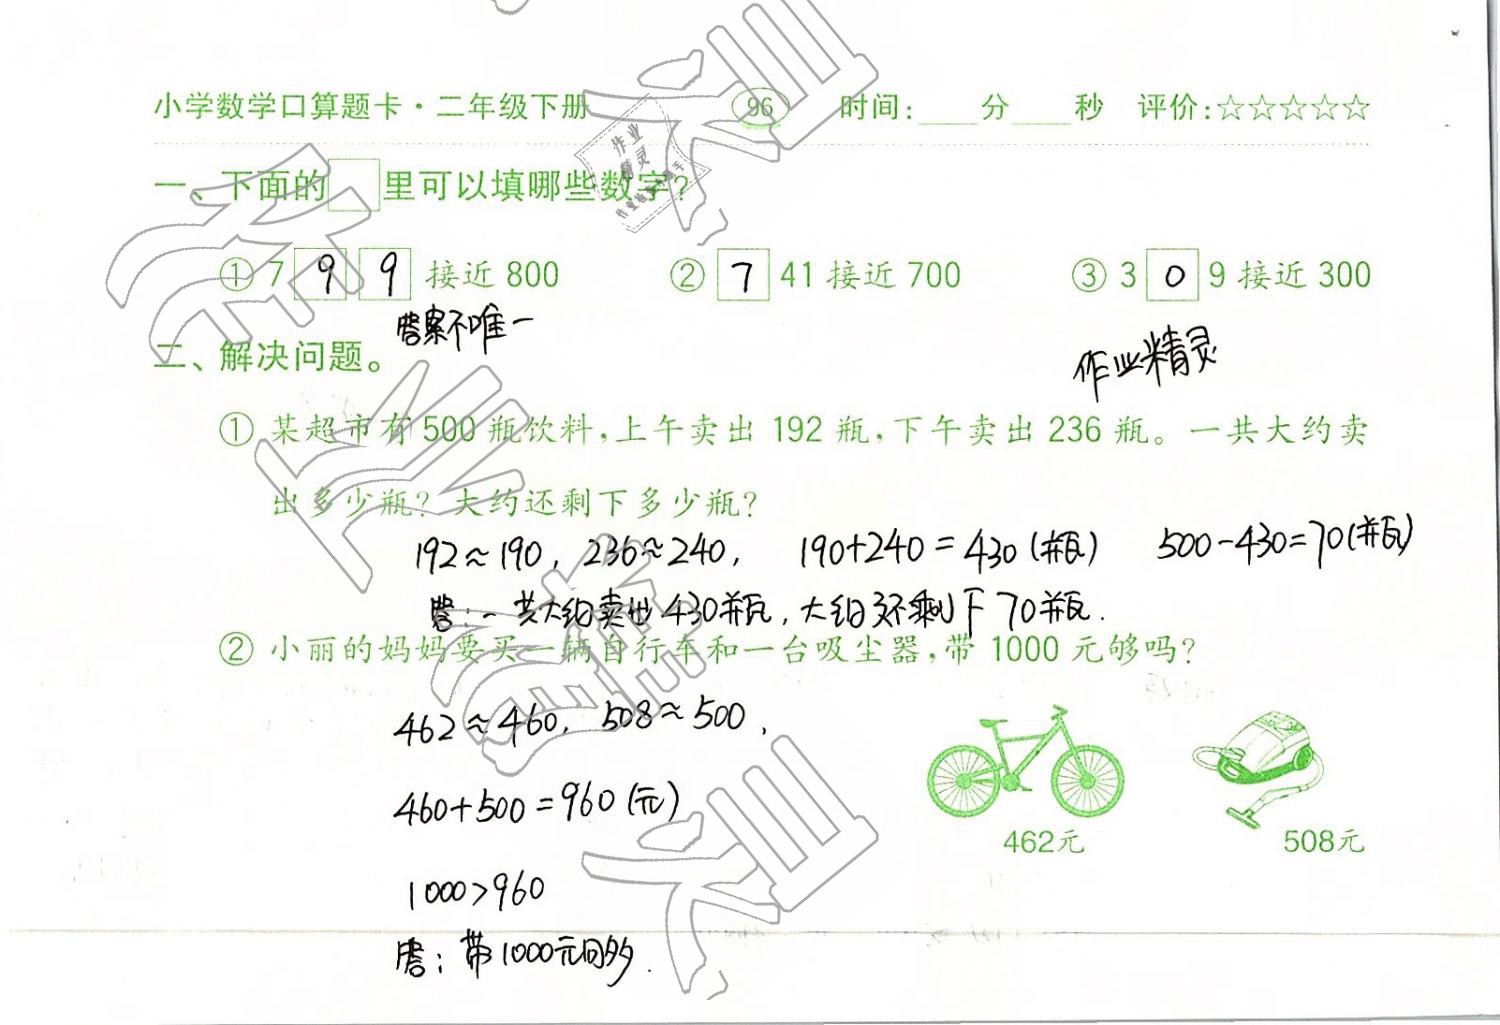 小学数学口算题卡·二年级下册 96 时间:____分____秒 评价:☆☆☆☆☆
一、下面的□里可以填哪些数字?
① 7 9 9 接近 800 ② 7 41 接近 700 ③ 3 0 9 接近 300
答案不唯一
二、解决问题。
作业精灵
① 某超市有 500 瓶饮料,上午卖出 192 瓶,下午卖出 236 瓶。一共大约卖
出多少瓶? 大约还剩下多少瓶?
192≈190, 236≈240, 190+240=430(瓶) 500-430=70(瓶)
答:一共大约卖出430瓶,大约还剩下70瓶.
② 小丽的妈妈要买一辆自行车和一台吸尘器,带 1000 元够吗?
462≈460, 508≈500,
460+500=960(元)
462元 508元
1000>960
答:带1000元够.
作业
精灵